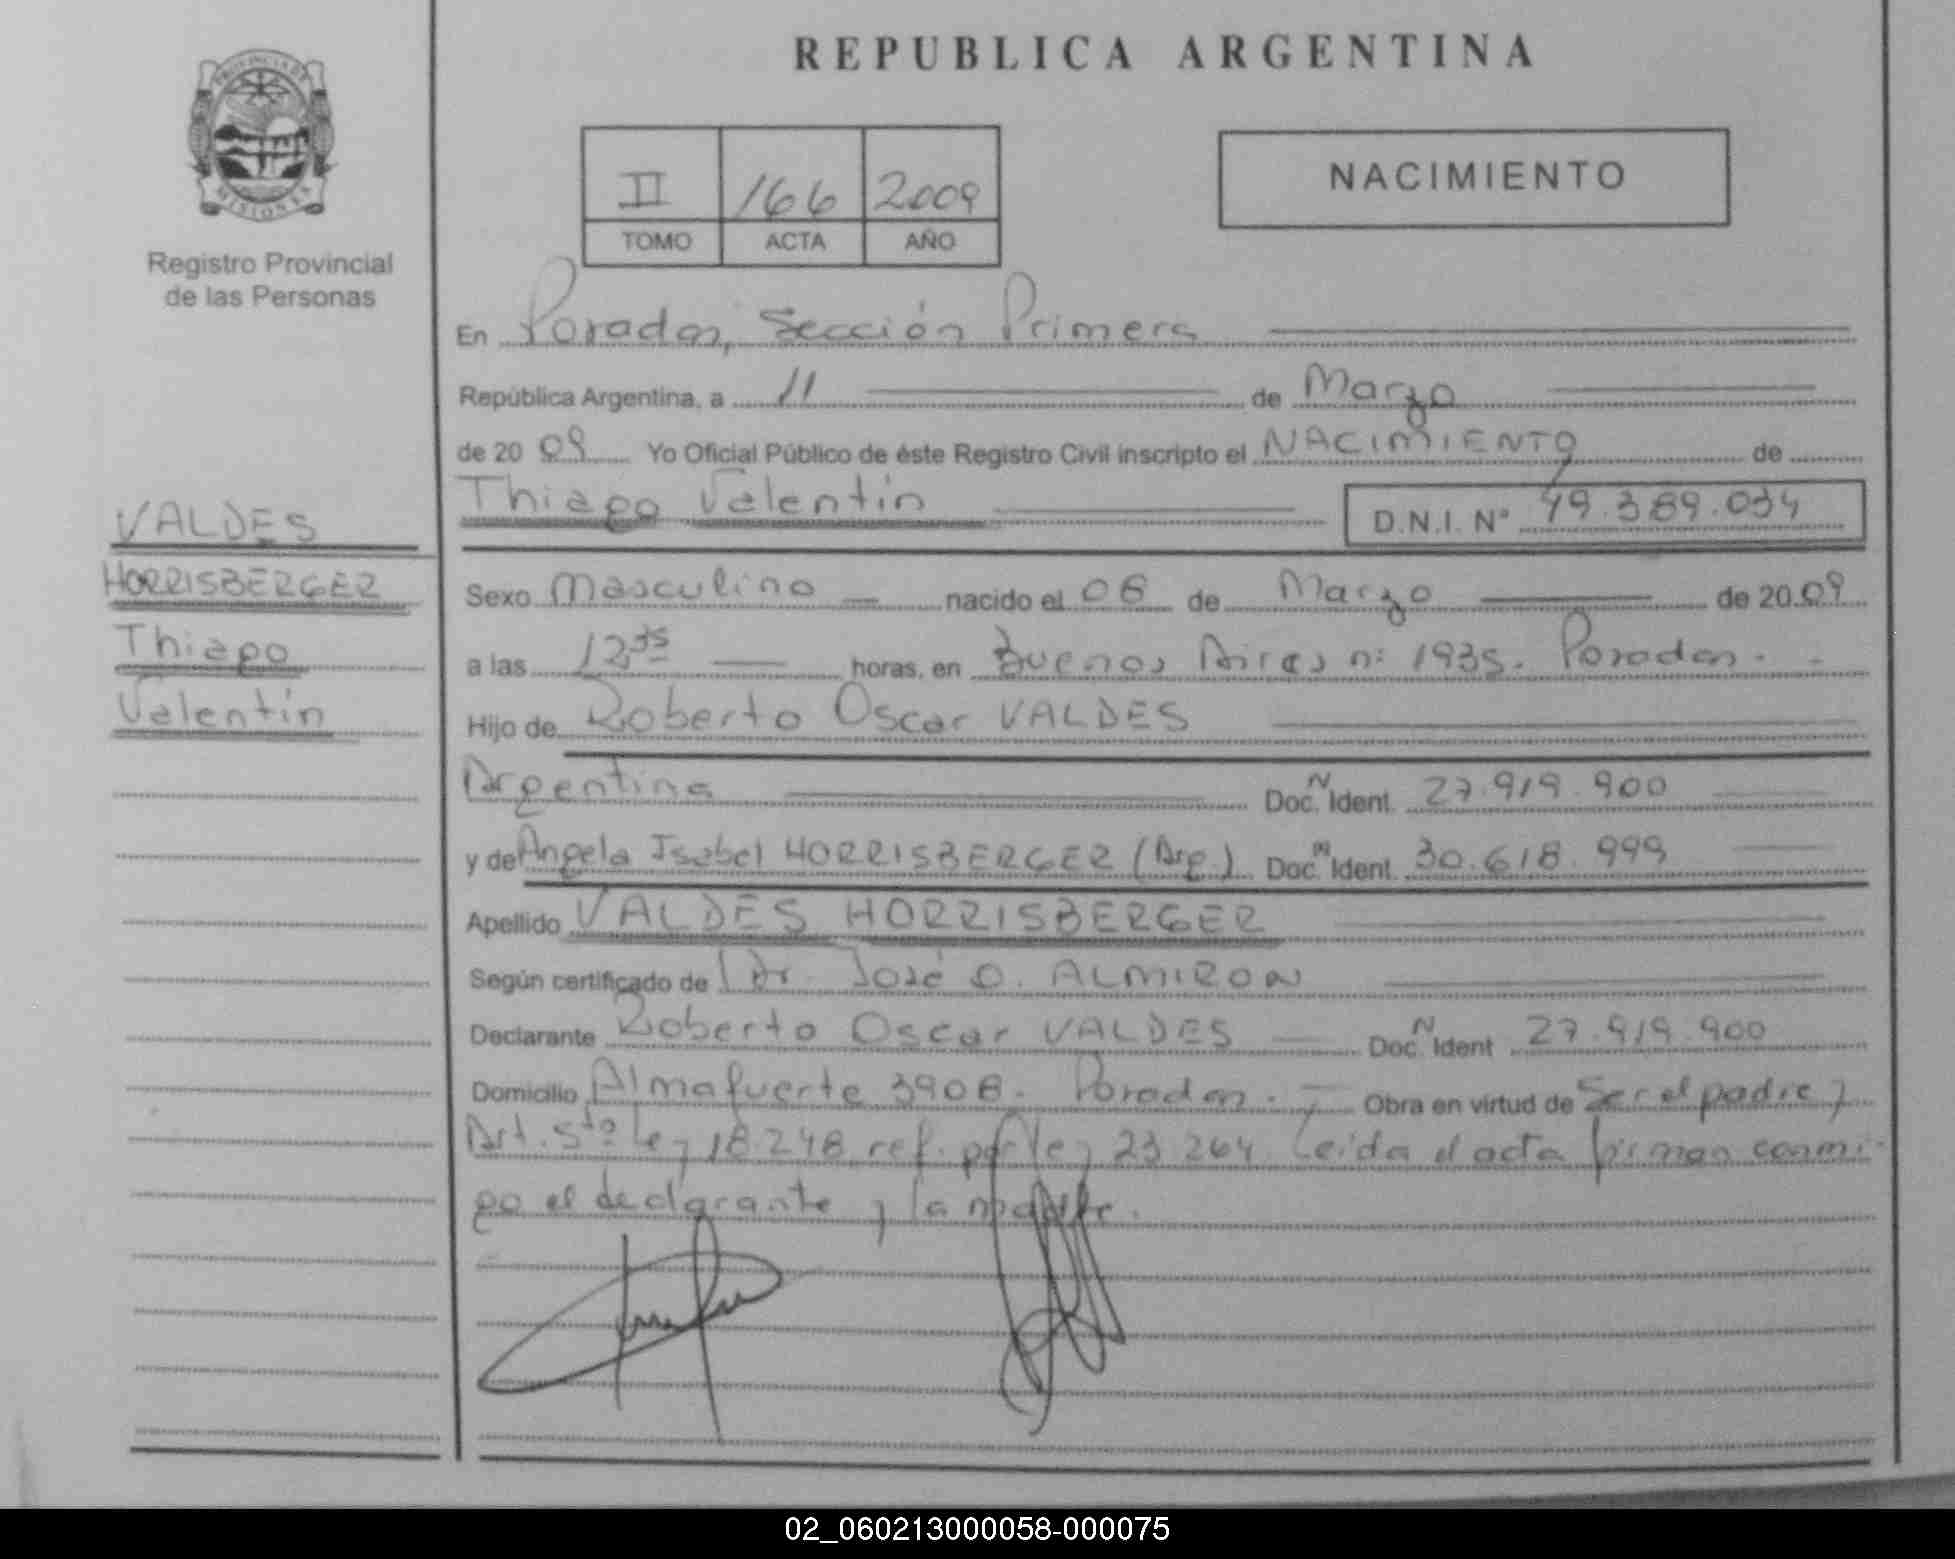 REPUBLICA ARGENTINA
PROVINCIA DE
MISIONES
Registro Provincial
de las Personas
II 166 2009
TOMO ACTA AÑO
NACIMIENTO
En Posadas, Sección Primera
República Argentina, a 11 de Marzo
de 20 09 Yo Oficial Público de éste Registro Civil inscripto el NACIMIENTO de
Thiago Valentín D.N.I. N° 49.389.034
VALDES
HORRISBERGER
Thiago
Valentín
Sexo Masculino nacido el 06 de Marzo de 20 09
a las 12 35 horas, en Buenos Aires n: 1935. Posadas.
Hijo de Roberto Oscar VALDES
Argentina Doc. N Ident. 27.919.900
y de Angela Isabel HORRISBERGER (Arg.) Doc. N Ident. 30.618.999
Apellido VALDES HORRISBERGER
Según certificado de Dr. José O. ALMIRON
Declarante Roberto Oscar VALDES Doc. N Ident 27.919.900
Domicilio Almafuerte 3908. Posadas. Obra en virtud de Ser el padre y
Art. 5to ley 18.248 ref. por ley 23.264. Leida el acta firman conmi-
go el declarante y la madre.
02_060213000058-000075